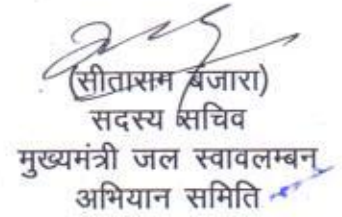 (सीताराम बंजारा)
सदस्य सचिव
मुख्यमंत्री जल स्वावलम्बन
अभियान समिति